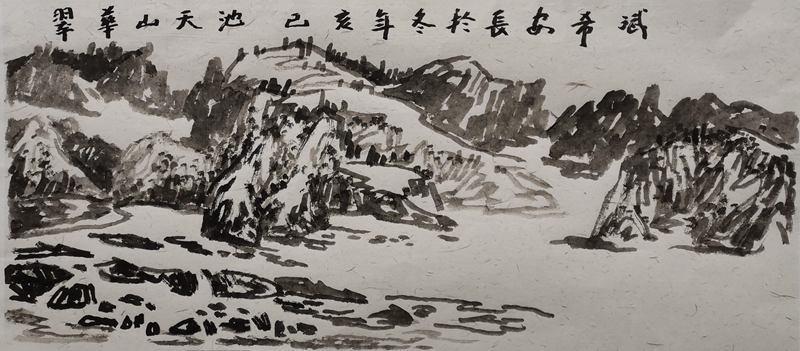 翠華山天池 己亥年冬於長安希斌